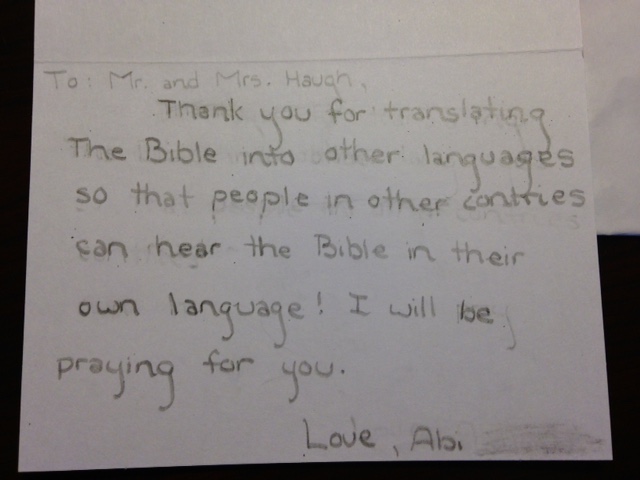 To: Mr. and Mrs. Haugh,
Thank you for translating
The Bible into other languages
so that people in other contries
can hear the Bible in their
own language! I will be
praying for you.
Love, Abi